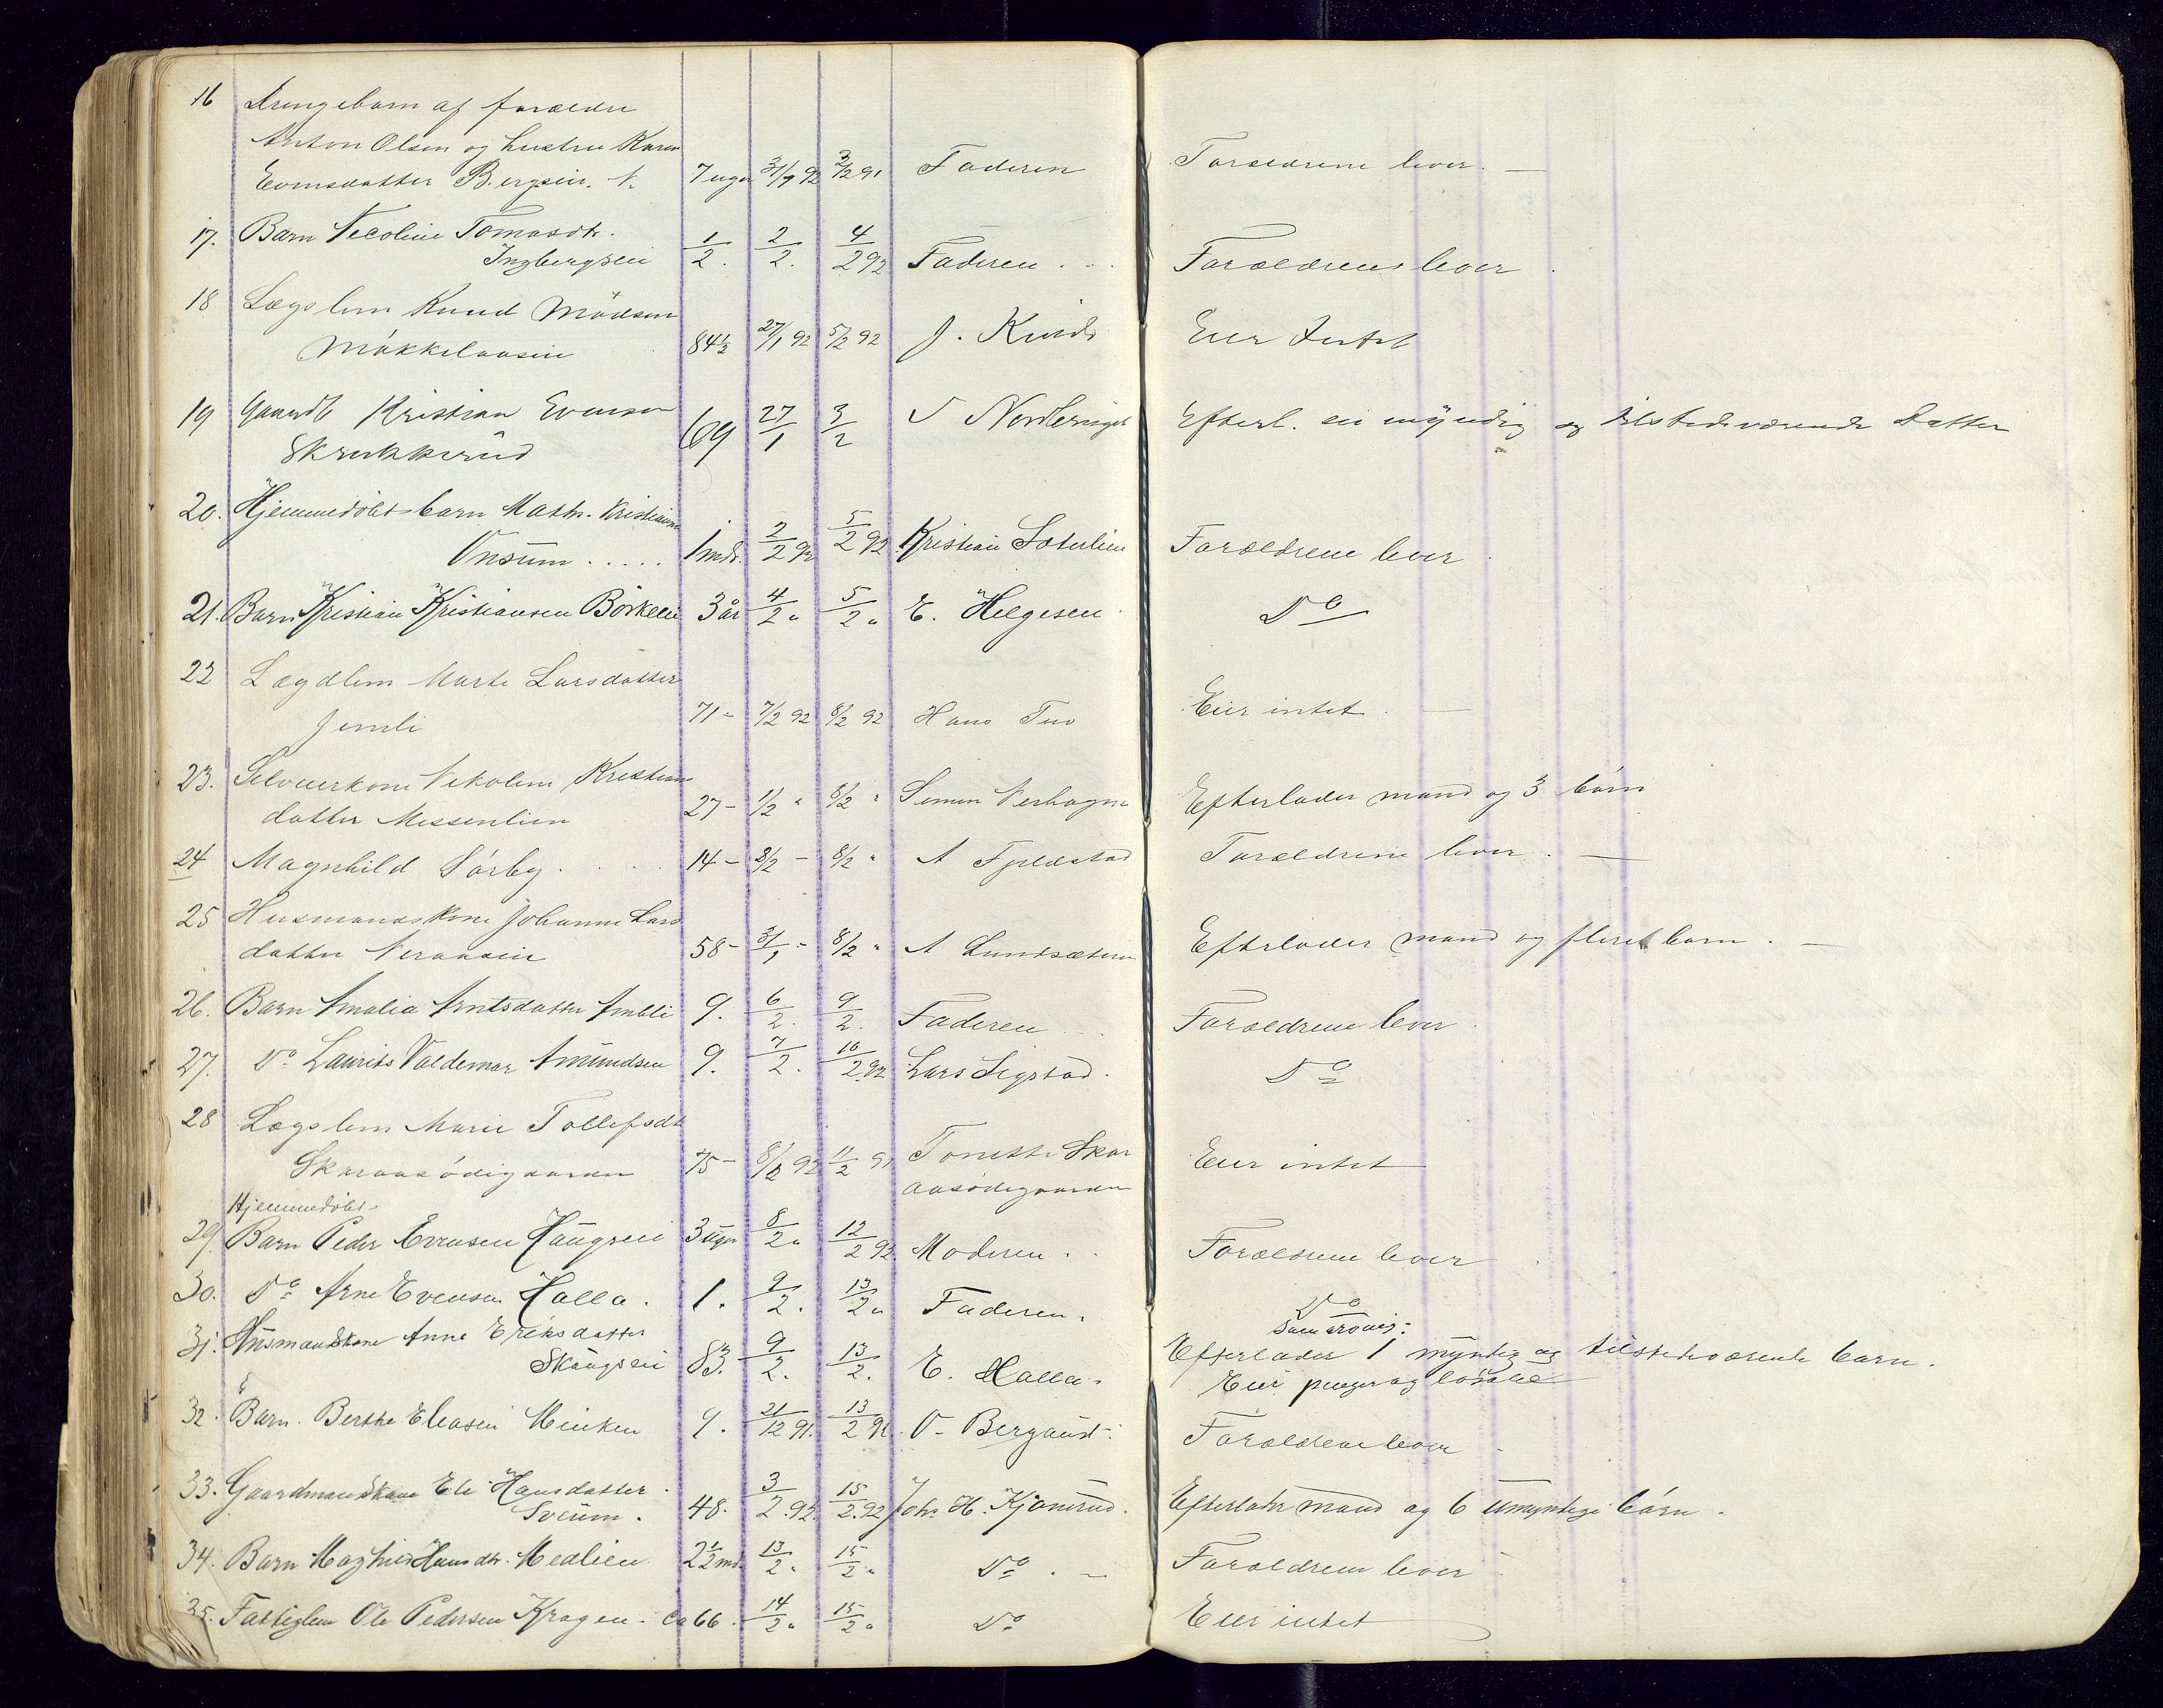 16 Drengebarn af forældre
Anton Olsen og hustru Karen
Evensdatter Bergseie. N. 7 uger 31/1 92 3/2 91 Faderen Forældrene lever. —
17. Barn Necoline Tomasdtr.
Ingbergseie 1/2. 2/2. 4/2 92 Faderen . . Forældrene lever.
18 Lægslem Knud
Mökkelaaseie 84½ 27/1 92 5/2 92 J. Eier Intet
19 Gaardb Kristian Evensen
Skrukkerud 69 27/1 3/2 Efterl. en myndig og tilstedeværende Datter
20. Hjemmedöbt barn Math. Kristians
Onsum . . . . . 1 mdr. 2/2 92 5/2 92 Kristian Soterlien Forældrene lever
21. Barn Kristian Kristiansen Börkeeie 3 år 4/2 " 5/2 " E. Helgesen. Do
22 Lægdlem Marte Larsdatter
Jemli 71 – 7/2 92 8/2 92 Hans Tuv Eier intet. —
23. Selveierkone Nekoline Kristians
datter Messenlien 27 – 1/2 " 8/2 " Simen Efterlader mand og 3 börn
24 Magnhild Sörby . . . . 14 – 3/2 – 8/2 " A Fjeldstad Forældrene lever. —
25 Husmandskone Johanne Lars
datter 58 – 31/1 – 8/2 " A Lundsæteren Efterlader mand og flere barn. —
26. Barn Amalia Arntsdatter Amble 9. 6/2. 9/2. Faderen Forældrene lever
27. Do Laurits Valdemar Amundsen 9. 7/2. 10/2 92 Lars Sigstad. Do
28 Lægslem Marie Tollefsdtr
Skaraasödegaarden 75 – 8/2 92 11/2 91 Tonette Skar
aasödegaarden Eier intet
Hjemmedöbt
29. Barn Peder Evensen Haugseie 3 uger 8/2 " 12/2 92. Moderen . . Forældrene lever
30. Do Arne Evensen Kalla. 1. 9/2. 13/2 " Faderen. Do
31. Husmandskone Anne Eriksdatter
Skaugseie 83. 9/2. 13/2. E. Kalla. Efterlader 1 myndig og tilstedeværende barn.
Eier penger og lösöre
32. Barn. Berthe Eliasen Meiken 9. 21/12 91. 13/2 91 O. Bergaust. Forældrene lever
33. Gaardmandskone Eli Hansdatter
Sveum. 48. 3/2. 92. 15/2. 92 Joh. H. Kjonerud. Efterlader mand og 6 umyndige börn.
34. Barn Maghild Hansdtr. Medlien 2½ md. 13/2 " 15/2 " Do . – Forældrene lever
35. Fattiglem Ole Pedersen Kragen. ca 66. 14/2 " 15/2 " Do Eier intet